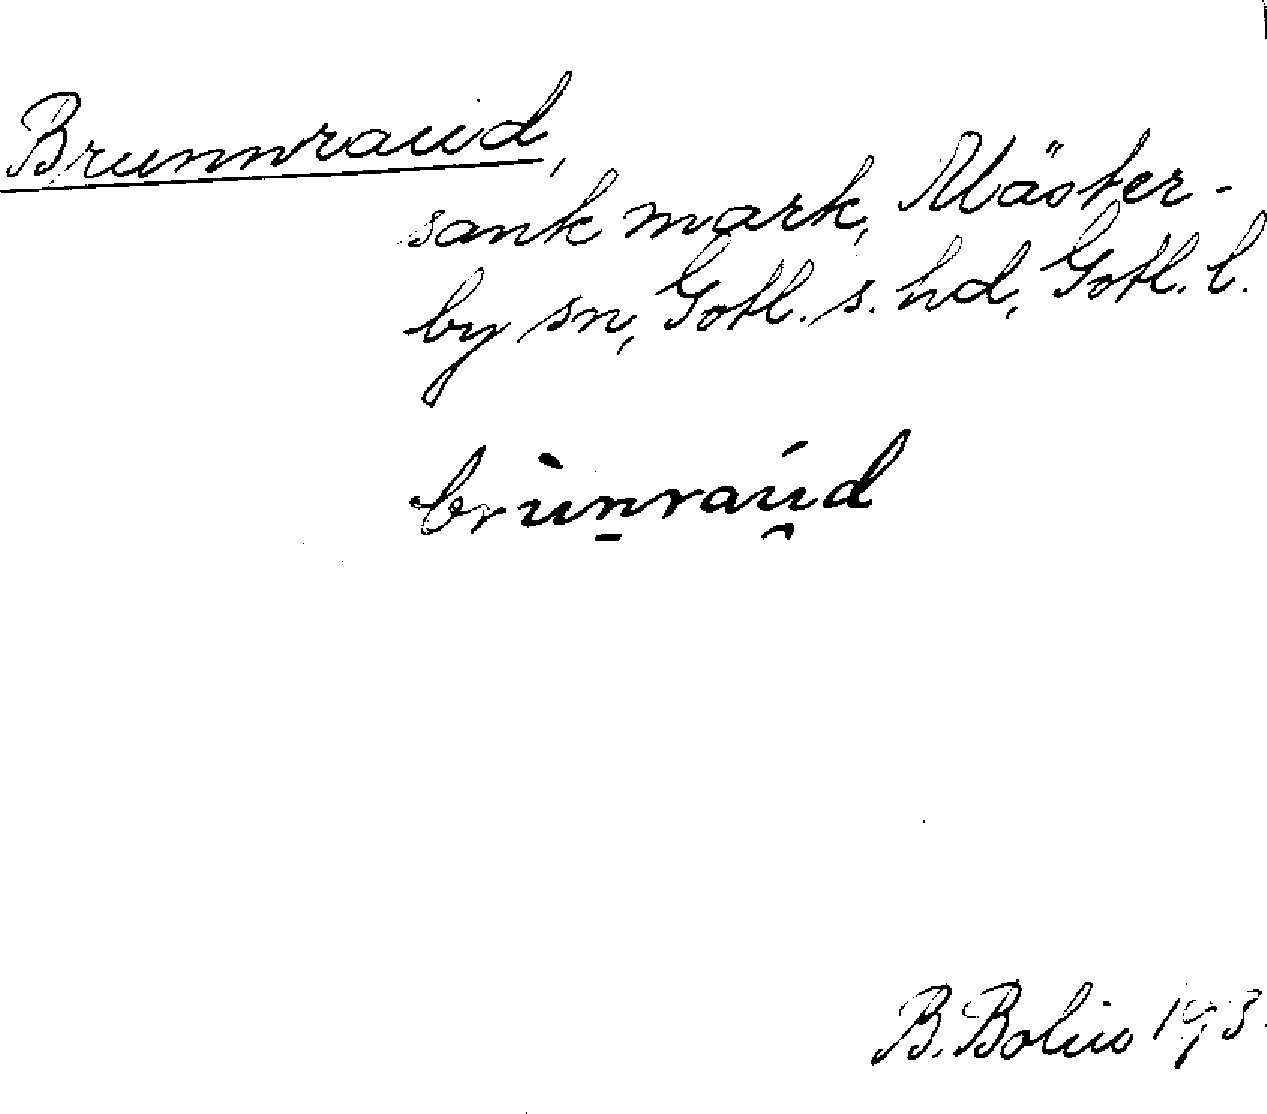 Brunnraud,
sank mark, Mäster-
by sn, Gotl. s. hd, Gotl. l.
brùn̠raú̯d
B. Bolin 193